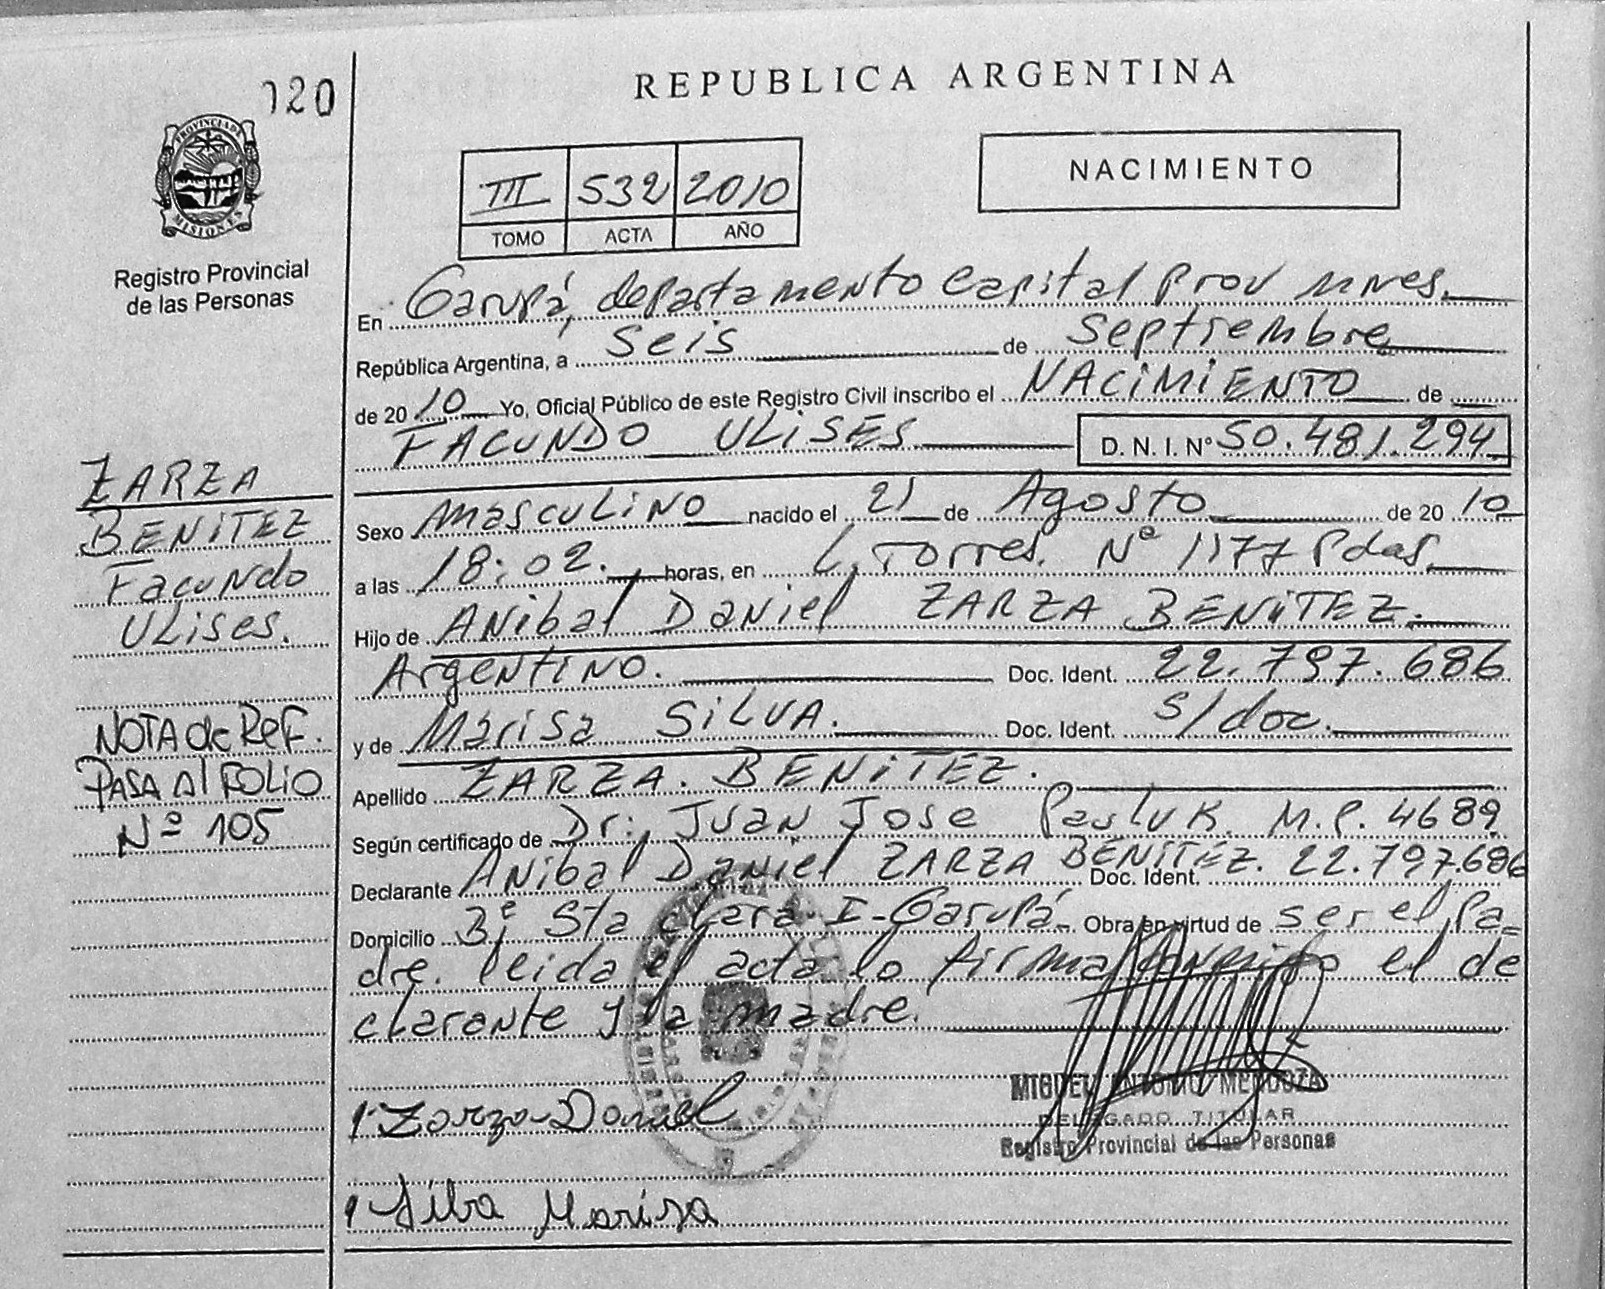 120
REPUBLICA ARGENTINA
PROVINCIA DE
MISIONES
Registro Provincial
de las Personas
III 532 2010
TOMO ACTA AÑO
NACIMIENTO
En Garupá, departamento Capital Prov Mnes.
República Argentina, a seis de septiembre
de 2010 Yo, Oficial Público de este Registro Civil inscribo el NACIMIENTO de
FACUNDO ULISES D. N. I. N° 50.481.294
ZARZA
BENITEZ
Facundo
ULises.
Sexo masculino nacido el 21 de Agosto de 2010
a las 18:02. horas, en L. Torres. Nº 1177 Pdas.
Hijo de Anibal Daniel ZARZA BENITEZ.
Argentino. Doc. Ident. 22.797.686
y de Marisa SILVA. Doc. Ident. s/doc.
NOTA de Ref.
PASA Al FOLIO
Nº 105
Apellido ZARZA. BENITEZ.
Según certificado de Dr: Juan Jose Pasluk. M.P. 4689
Declarante Anibal Daniel ZARZA BENITEZ. Doc. Ident. 22.797.686
Domicilio Bº Sta Clara I-Garupá- Obra en virtud de ser el Pa-
dre. leida el acta lo firma conmigo el de
clarante y la madre.
Zarza Daniel
MIGUEL ANTONIO MENDOZA
DELEGADO TITULAR
Registro Provincial de las Personas
Silva Marisa